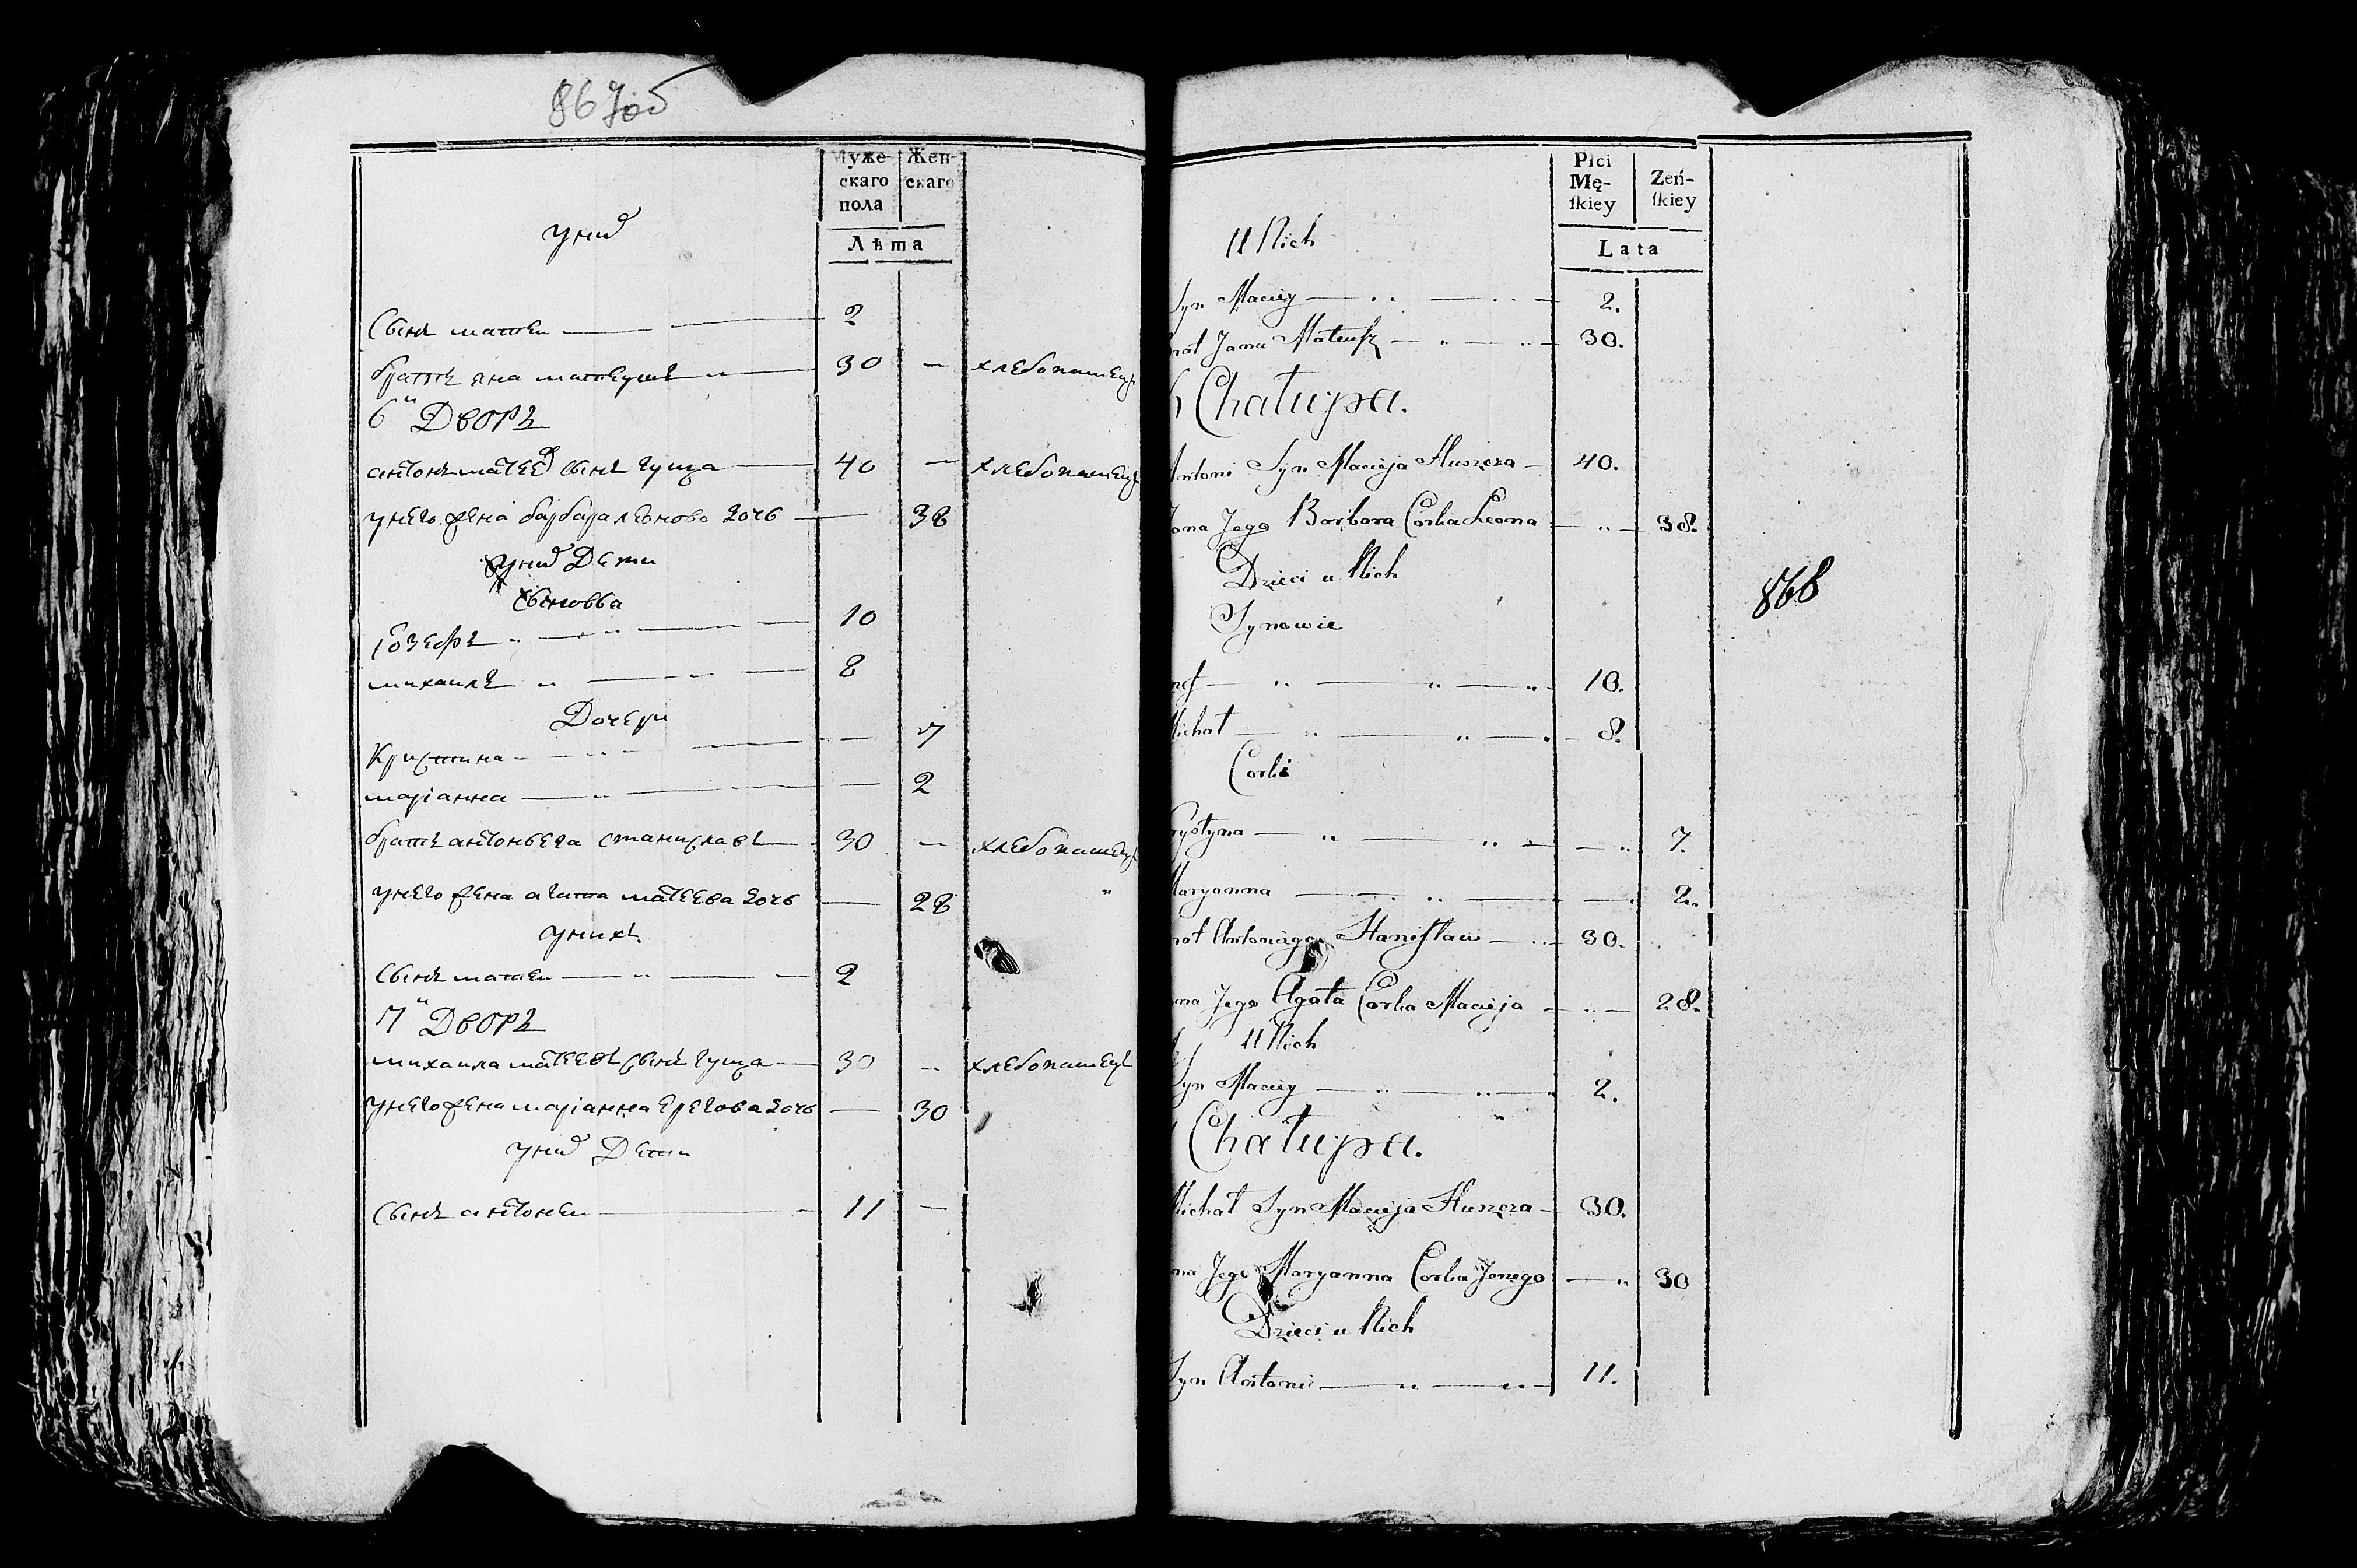 867об
Муже-
скаго
пола
Жен-
скаго
Лѣта
у них
Сынъ матеи 2
братъ яна матеушъ 30 хлебопашецъ
6й Дворъ
антонъ матеев сынъ гуща 40 хлебопашецъ
у него жена барбара леонова дочь 38
у них Дети
Сыновья
Iозефъ 10
михаилъ 8
Дочери
Кристина 7
марiанна 2
братъ антоньега станиславъ 30 хлебопашецъ
у него жена агата матеева дочь 28
у нихъ
Сынъ матеи 2
7й Дворъ
михаила матеевъ сынъ гуща 30 хлебопашецъ
у него жена марiанна ерегова дочь 30
у них Дети
Сынъ антони 11
Płci
Mę-
ſkiey
Zeń-
ſkiey
Lata
U Nich
Syn Maciey 2.
rat Jana Mateusz 30.
6 Chałupa.
Antoni Syn Macieja Huszcza 40.
ona Jego Barbara Corka Leona 38.
Dzieci u Nich
Synowie
zef 10.
Michał 8.
Corki
rystyna 7.
Maryanna 2.
rat Antoniego Staniſław 30.
ona Jego Agata Corka Macieja 28.
U Nich
Syn Maciey 2.
Chałupa.
Michał Syn Macieja Huszcza 30.
ona Jego Maryanna Corka Jerzego 30
Dzieci u Nich
Syn Antoni 11.
868